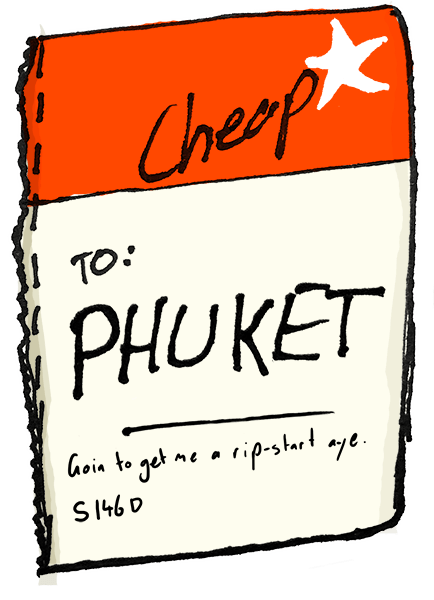 Cheap
TO:
PHUKET
Goin to get me a rip-start aye.
S146D